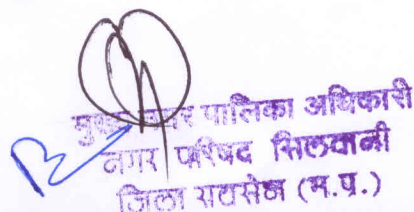 मुख्य नगर पालिका अधिकारी
नगर परिषद सिलवानी
जिला रायसेन (म.प्र.)